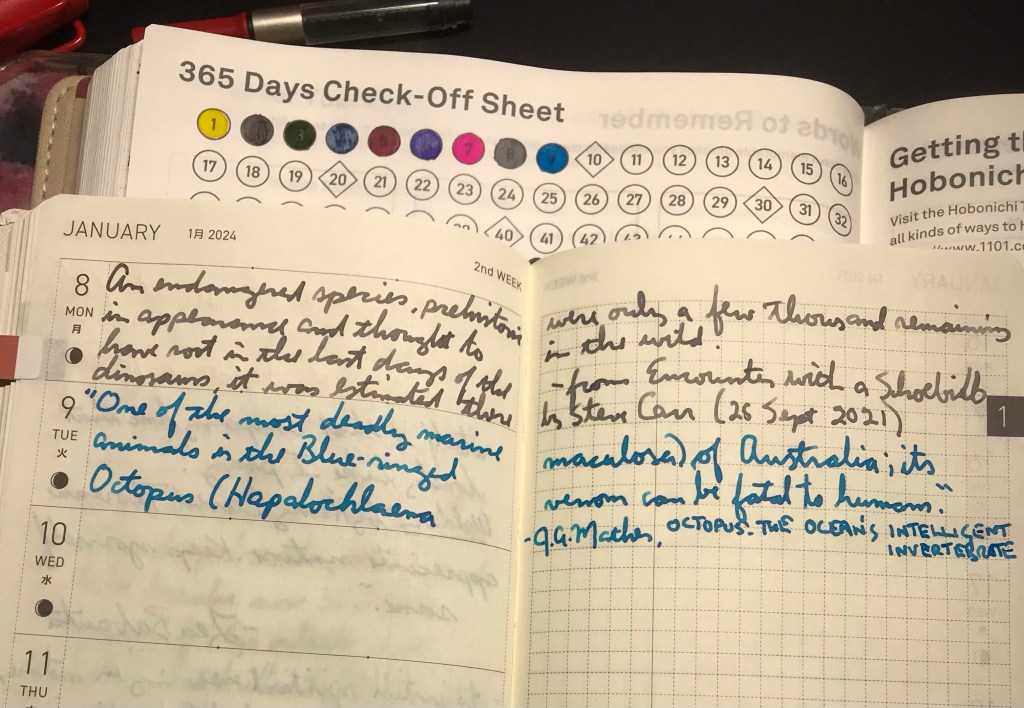 365 Days Check-Off Sheet
1 3 5 7 8 9 10 11 12 13 14 15 16
17 18 19 20 21 22 23 24 25 26 27 28 29 30 31 32
40 41 42
Getting
Hobonich
Visit the Hobonichi
all kinds of ways to
www.1101.c
JANUARY 1月 2024
2nd WEEK
8
MON
月
An endangered species, prehistoric
in appearance and thought to
have root in the last days of the
dinosaurs, it was estimated there
9
TUE
火
"One of the most deadly marine
animals is the Blue-ringed
Octopus (Hapalochlaena
10
WED
水
11
THU
were only a few thousand remaining
in the wild.
- from Encounter with a Shoebill
by Steve Carr (26 Sept 2021)
1
maculosa) of Australia; its
venom can be fatal to humans."
- J.A. Mather, OCTOPUS: THE OCEAN'S INTELLIGENT
INVERTEBRATE